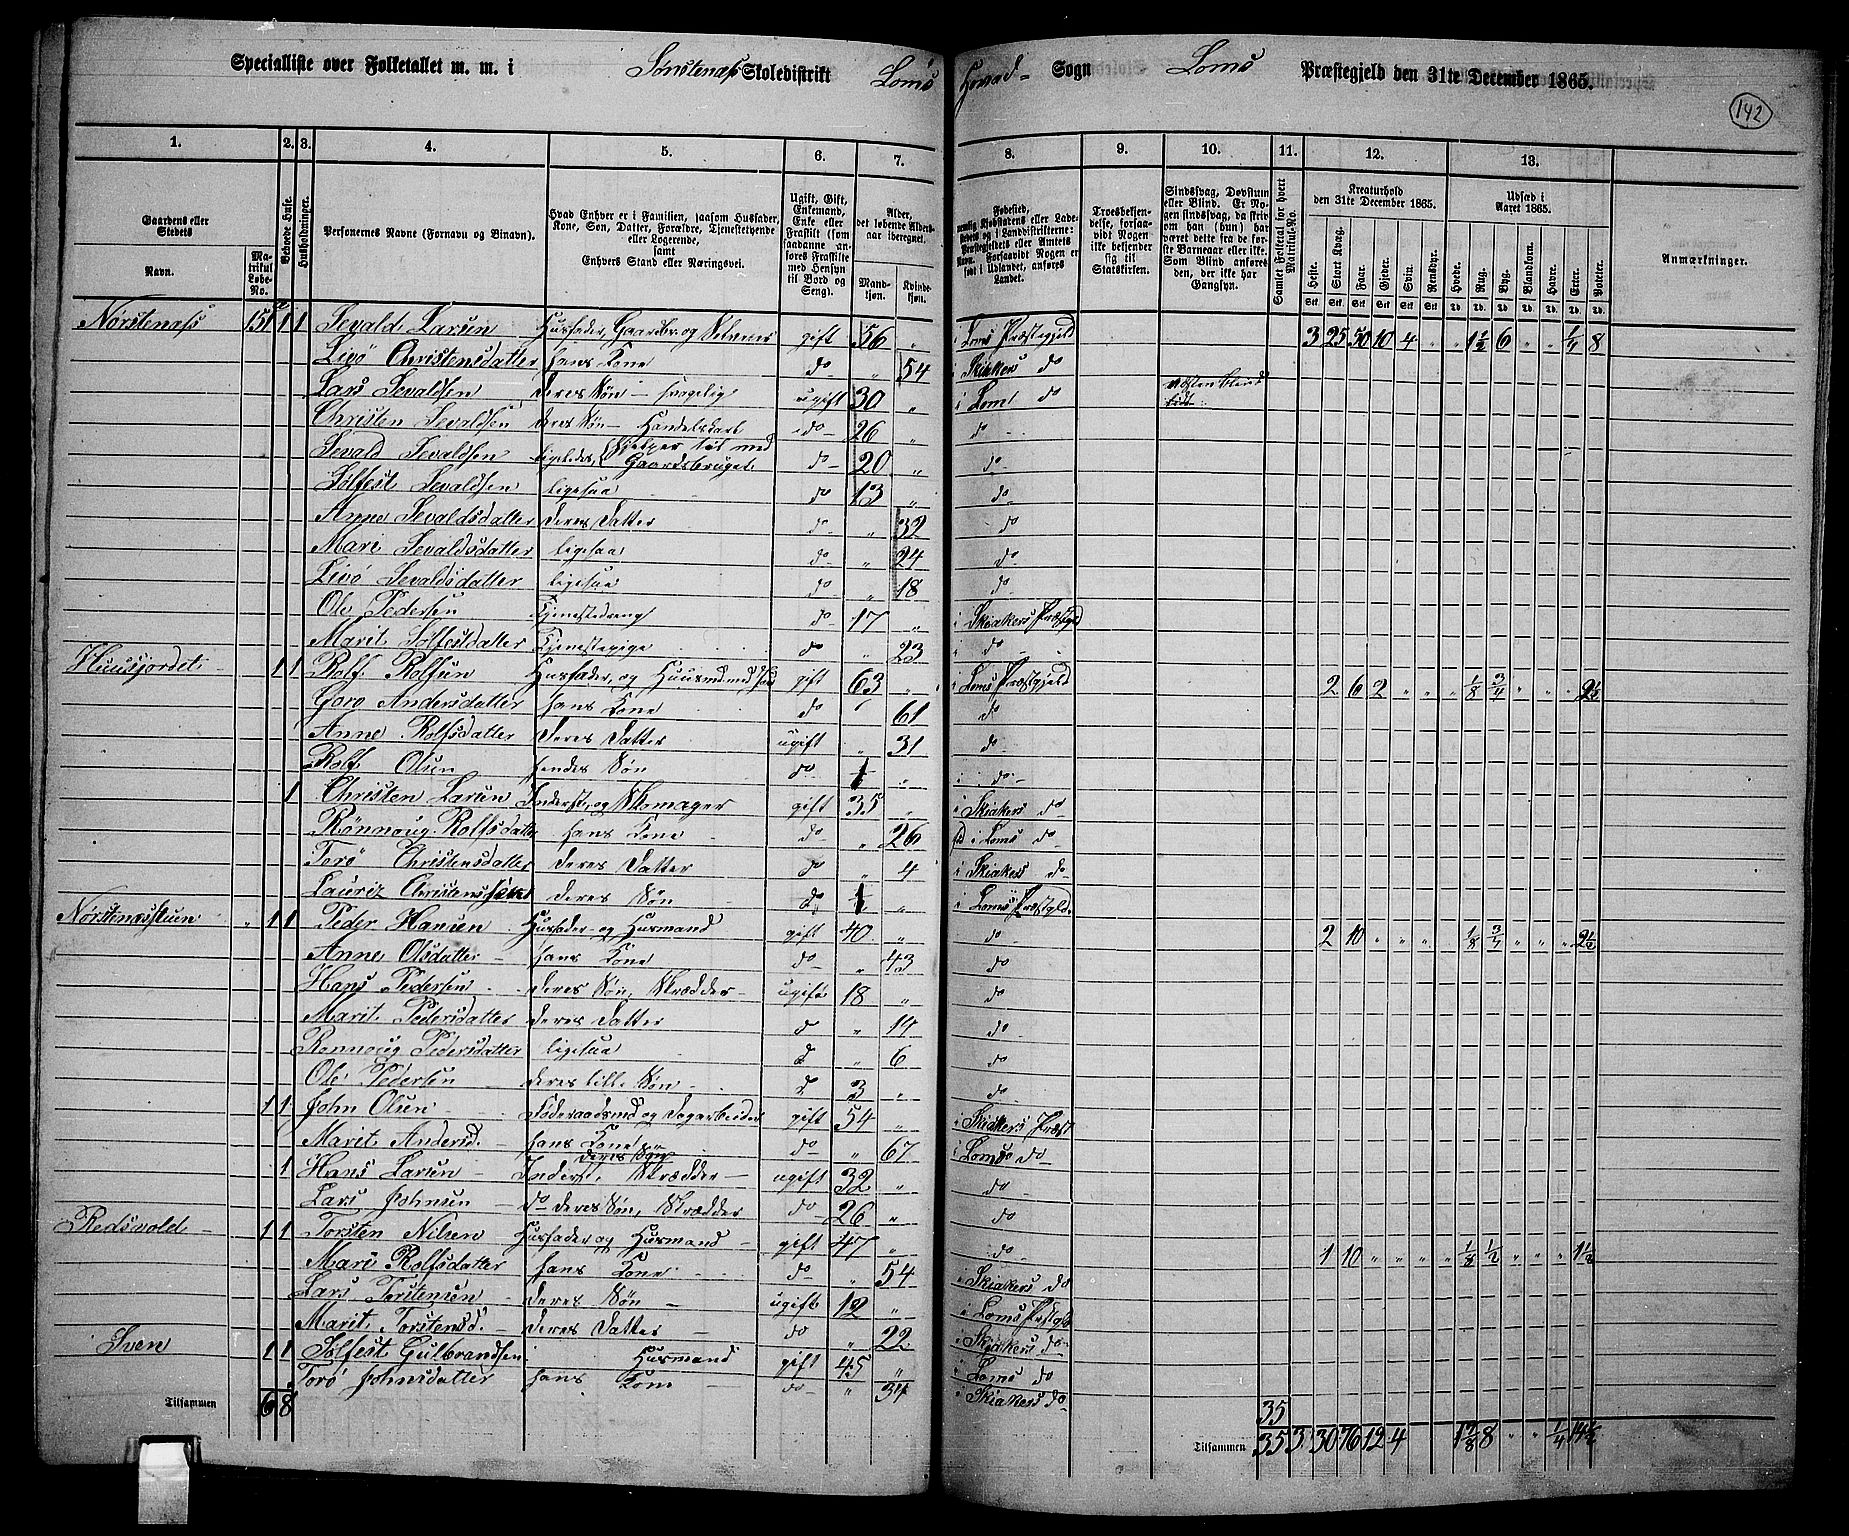 Specialliste over Folketallet m. m. i Sønstenæs Skoledistrikt Loms Hoved- Sogn Loms Præstegjeld den 31te December 1865.
142
1. 2. 3. 4. 5. 6. 7. 8. 9. 10. 11. 12. 13.
Gaardens eller Stedets
Navn.
Matrikul Løbe-No.
Beboede Huse.
Husholdninger.
Personernes Navne (Fornavn og Binavn).
Hvad Enhver er i Familien, saasom Husfader, Kone, Søn, Datter, Forældre, Tjenestetyende eller Logerende, samt Enhvers Stand eller Næringsvei.
Ugift, Gift, Enkemand, Enke eller Fraskilt (som saadanne anføres Fraskilte med Hensyn til Bord og Seng).
Alder, det løbende Aldersaar iberegnet.
Mandkjøn. Kvindekjøn.
Troesbekjendelse, forsaavidt Nogen ikke bekjender sig til Statskirken.
Sindssvag, Døvstum eller Blind. Er Nogen sindssvag, da skrives om han (hun) har været dette fra de første Barneaar eller ikke. Som Blind anføres den, der ikke har Gangsyn.
Samlet Folketal for hvert Matrikul-No.
Kreaturhold den 31te December 1865.
Heste. Stort Kvæg. Faar. Gjeder. Svin. Rensdyr.
Udsæd i Aaret 1865.
Hvede. Rug. Byg. Blandkorn. Havre. Erter. Poteter.
Anmærkninger.
Nørstenæss 151a 1 1 Sevald Larsen Husfader, Gaardbr. og gift 56 „ i Loms Præstegjeld 3 25 50 10 4 „ „ 1½ 6 „ „ ¼ 8
Livø Christensdatter hans Kone do „ 54 i Skiakers do
Lars Sevaldsen deres Søn ugift 30 „ i Lom do næsten blind
Christen Sevaldsen deres Søn Handelskarl do 26 „ do
Sevald Sevaldsen ligeledes, hjelper til med Gaardsbruget do 20 „ do
Sølfest Sevaldsen ligesaa do 13 „ do
Anne Sevaldsdatter deres Datter do „ 32 do
Mari Sevaldsdatter ligesaa do „ 24 do
Livø Sevaldsdatter ligesaa do „ 18 do
Ole Pedersen Tjenestedreng do 17 „ i Skiakers Præstgjd
Marit Sølfestdatter Tjenestepige do 23 i do
Huusjordet 1 1 Rolf Rolfsen Husfader, og Huusmd. med Jord gift 63 „ i Loms Præstgjeld 2 6 2 „ „ „ 1/8 3/4 „ „ „ 2½
Goro Andersdatter hans Kone do 61 do
Anne Rolfsdatter deres Datter ugift „ 31 do
Rolf Olsen hendes Søn do 1 „ i do
1 Christen Larsen Inderst, og Skomager gift 35 „ i Skiakers do
Rønnoug Rolfsdatter hans Kone do „ 26 i Loms do
Torø Christensdatter deres Datter do „ 4 i Skiakers do
Lauriz Christenssen deres Søn do 1 „ i Loms Præstgld.
Nørstenæsstuen „ 1 1 Peder Hansen Husfader og Husmand gift 40 „ do 2 10 „ „ „ 1/8 3/4 „ „ „ 2½
Anne Olsdatter hans Kone do „ 43 do
Hans Pedersen deres Søn, Skrædder ugift 18 „ do
Marit Pedersdatter deres Datter d „ 14 do
Ronnoug Pedersdatter ligesaa d „ 6 do
Ole Pedersen deres lille Søn d 3 „ do
1 1 John Olsen Føderaadsmd og Dagarbeider gift 54 „ i Skiakers Præst
Marit Andersd. hans Kone do „ 67 i Loms do
1 Hans Larsen Inderst, deres Søn Skrædder ugift 32 „ do
Lars Johnsen do deres Søn, Skrædder do 26 „ do
Redsvold 1 1 Torsten Nilsen Husfader og Husmand gift 47 „ do 1 10 „ „ „ 1/8 ½ „ „ „ 1½
Mari Rolfsdatter hans Kone do „ 54 i Skiakers do
Lars Torstensen deres Søn ugift 12 „ i Loms Præstgld
Marit Torstensd. deres Datter do „ 22 i Skiakers do
Sven 1 1 Sølfest Gulbrandsen Husmand gift 45 „ i Loms do
Torø Johnsdatter hans Kone do „ 34 i Skiakers do
Tilsammen 6 8 35
Tilsammen 35 3 30 76 12 4 8 „ „ ¼ 14½